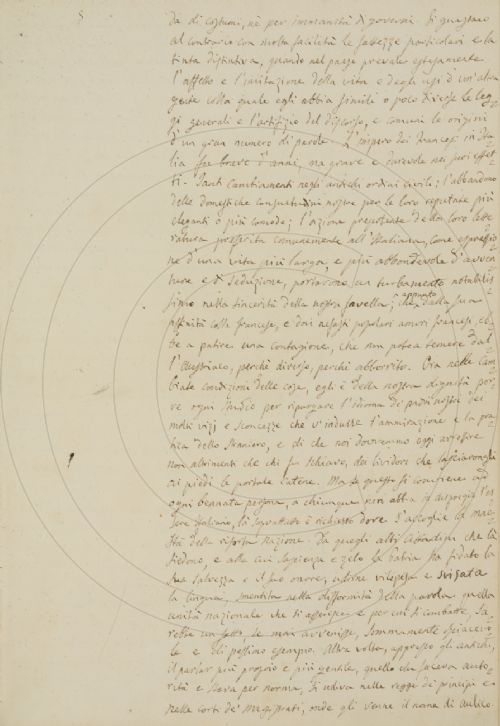 da di costumi, nè per immanità di governi. Si guastano
al contrario con molta facilità le fattezze particolari e la
tinta distintiva, quando nel paese prevale estesamente
l'affetto e l'imitazione della vita e degli usi d'un'altra
gente colla quale egli abbia simili o poco diverse le leg-
gi generali e l'artifizio del discorso, e comuni le origini
d'un gran numero di parole. L'impero dei Francesi in Ita-
lia fu breve d'anni, ma grave e durevole nei suoi effet-
ti. Tanti cambiamenti negli antichi ordini civili; l'abbandono
delle domestiche consuetudini nostre per le loro reputate più
eleganti o più comode; l'azione prepotente della loro lette-
ratura preferita comunemente all'Italiana, come espressio-
ne d'una vita più larga, e più abbondevole d'avven-
ture e di seduzione, portarono un turbamento notabilis-
simo nella sincerità della nostra favella; che appunto dalla sua
affinità colla francese, e don nefasti popolari amori francesi, eb-
be a patire una contagione, che non potea temere dal-
l'Austriaco, perchè diverso, perchè abborrito. Ora nelle cam-
biate condizioni delle cose, egli è della nostra dignità por-
re ogni studio per ripurgare l'idioma de' padri nostri dei
molti vizj e sconcezze che v'indusse l'ammirazione e la pra-
tica dello straniero, e di che noi dovremmo oggi arrossire
non altrimenti che chi fu schiavo, dei lividori che lasciarongli
ai piedi le portate catene. Ma se questo si conviene ad
ogni bennata persona, a chiunque non abbia in dispregio l'es-
sere italiano, lo soprattutto è richiesto dove s'accoglie la mae-
stà della risorta nazione. Da quegli alti cittadini che là
siedono, e alla cui sapienza e zelo la Patria ha fidato la
sua salvezza e il suo onore, udire vilipesa e svisata
la lingua, smentita nella difformità della parola quella
unità nazionale che si asserisce e per cui si combatte, sa-
rebbe un fatto, se mai avvenisse, sommamente spiacevo-
le e di pessimo esempio. Altra volta, appresso gli antichi,
il parlar più proprio e più gentile, quello che faceva auto-
rità e stava per norma, si udiva nelle reggie de' principi e
nelle corti de' magistrati, onde gli venne il nome di Aulico